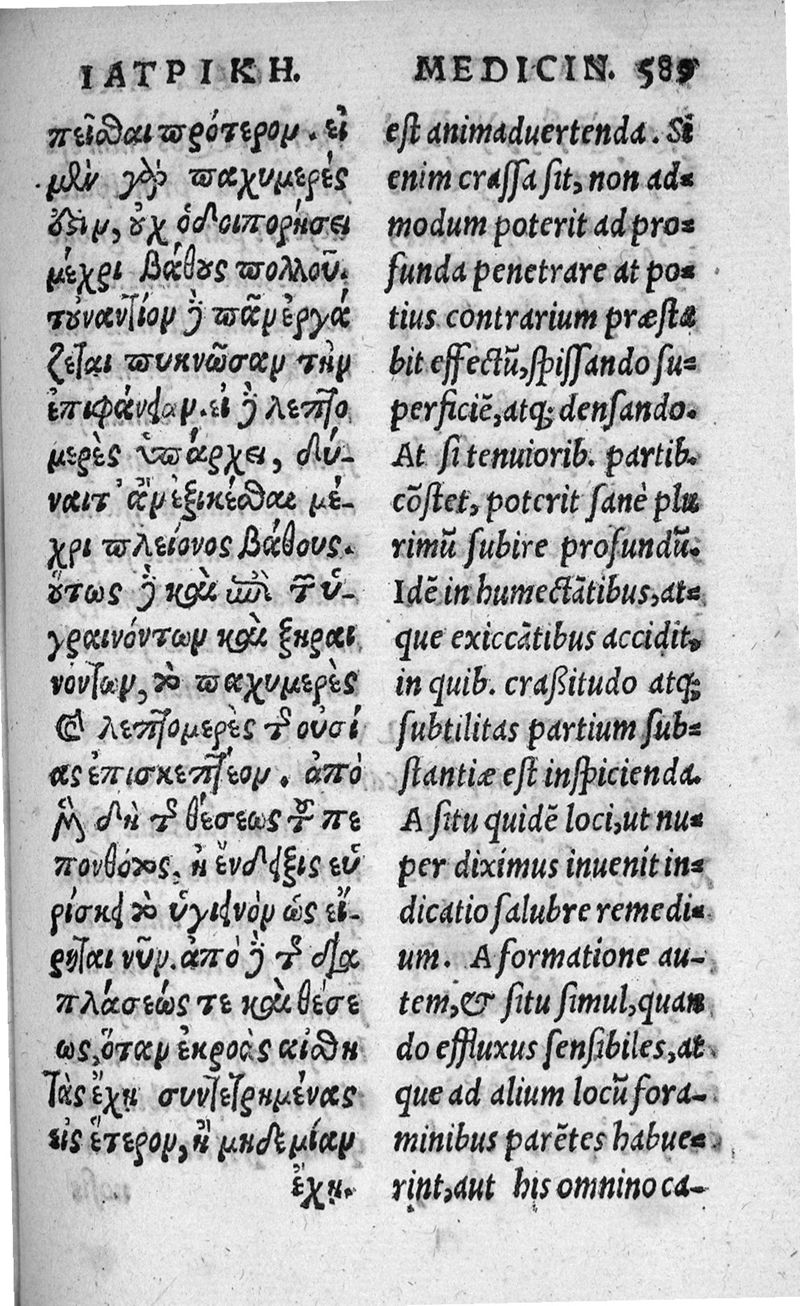 ΙΑΤΡΙΚΗ.
πεῖσθαι πρότερον. εἰ
μὲν γὰρ παχυμερὲς
οὐχ ὁδοιπορήσει
μέχρι βάθους πολλοῦ.
τοὐναντίον δὲ πᾶν ἐργά
ζεται πυκνῶσαν τὴν
ἐπιφάνειαν. εἰ δὲ λεπτο
μερὲς ὑπάρχει, δύ-
ναιτ' ἂν ἐξικέσθαι μέ-
χρι πλείονος βάθους.
οὕτως δὲ καὶ ἐπὶ τῶν ὑ-
γραινόντων καὶ ξηραι
νόντων, τὸ παχυμερὲς
καὶ λεπτομερὲς τῆς οὐσί
ας ἐπισκεπτέον. ἀπὸ
μὲν δὴ τῆς θέσεως τοῦ πε
πονθότος, ἡ ἔνδειξις εὑ
ρίσκει τὸ ὑγιεινὸν ὡς εἴ-
ρηται νῦν. ἀπὸ δὲ τῆς δια
πλάσεώς τε καὶ θέσε
ως, ὅταν ἐκροὰς αἰσθη
τὰς ἔχῃ συντετρημένας
εἰς ἕτερον, ἢ μηδεμίαν
ἔχῃ.
MEDICIN. 589
est animaduertenda. Si
enim crassa sit, non ad-
modum poterit ad pro-
funda penetrare at po-
tius contrarium præsta
bit effectũ, spissando su-
perficiẽ, atq; densando.
At si tenuiorib. partib.
cõstet, poterit sanè plu
rimũ subire profundũ.
Idẽ in humectãtibus, at-
que exiccãtibus accidit,
in quib. craßitudo atq;
subtilitas partium sub-
stantiæ est inspicienda.
A situ quidẽ loci, ut nu-
per diximus inuenit in-
dicatio salubre remedi-
um. A formatione au-
tem, & situ simul, quan
do effluxus sensibiles, at
que ad alium locũ fora-
minibus parẽtes habue-
rint, aut his omnino ca-